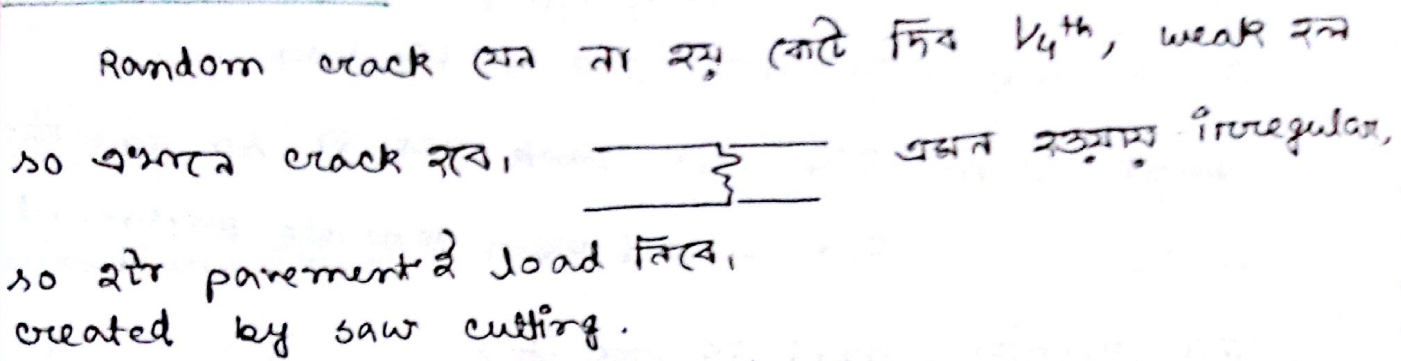 Random crack যেন না হয় কেটে দিব 1/4th, weak হল
so এখানে crack হবে। এমন হওয়ায় irregular,
so pavement ই load নিবে।
created by saw cutting.